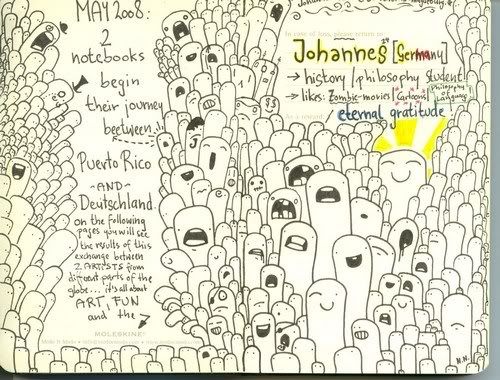 MAY 2008:
2
notebooks
begin
their journey
beetween
Puerto Rico
-AND-
Deutschland.
on the following
pages you will see
the results of this
exchange between
2 ARTISTS from
different parts of the
globe... it's all about
ART, FUN
and the
MOLESKINE
In case of loss, please return to:
Johannes [Germany]
→ history/philosophy student
→ likes: Zombie-movies Cartoons Philosophy of Language
As a reward
eternal gratitude
N.N.